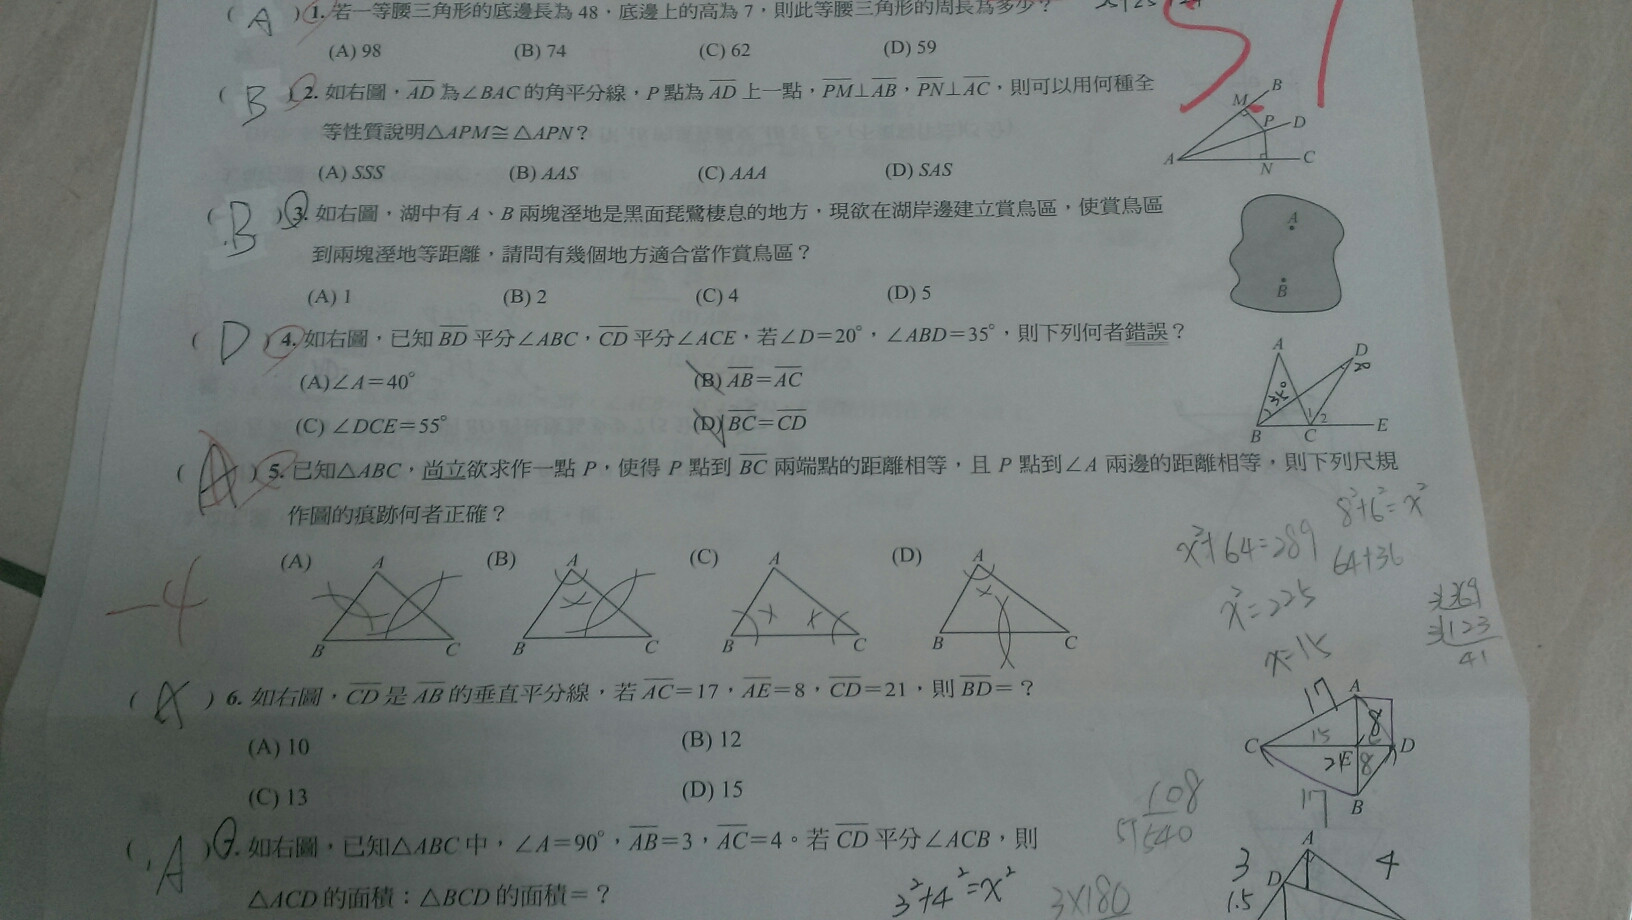 ( A ) 1. 若一等腰三角形的底邊長為 48，底邊上的高為 7，則此等腰三角形的周長為多少？
(A) 98 (B) 74 (C) 62 (D) 59
51
( B ) 2. 如右圖，AD 為∠BAC 的角平分線，P 點為 AD 上一點，PM⊥AB，PN⊥AC，則可以用何種全
等性質說明△APM≅△APN？
(A) SSS (B) AAS (C) AAA (D) SAS
A M B P D N C
( B ) 3. 如右圖，湖中有 A、B 兩塊溼地是黑面琵鷺棲息的地方，現欲在湖岸邊建立賞鳥區，使賞鳥區
到兩塊溼地等距離，請問有幾個地方適合當作賞鳥區？
(A) 1 (B) 2 (C) 4 (D) 5
A
B
( D ) 4. 如右圖，已知 BD 平分∠ABC，CD 平分∠ACE，若∠D=20°，∠ABD=35°，則下列何者錯誤？
(A)∠A=40° (B) AB=AC
(C) ∠DCE=55° (D) BC=CD
A D 20 35° 1 2 B C E
( A ) 5. 已知△ABC，尚立欲求作一點 P，使得 P 點到 BC 兩端點的距離相等，且 P 點到∠A 兩邊的距離相等，則下列尺規
作圖的痕跡何者正確？
(A) (B) (C) (D)
A A A A
B C B C B C B C
-4
8²+6²=x²
x²+64=289 64+36
x²=225
x=15
3)369
3)123
41
( A ) 6. 如右圖，CD 是 AB 的垂直平分線，若 AC=17，AE=8，CD=21，則 BD=？
(A) 10 (B) 12
(C) 13 (D) 15
17 A 8
C 15 E D
21 8
17 B
108
5)540
( A ) 7. 如右圖，已知△ABC 中，∠A=90°，AB=3，AC=4。若 CD 平分∠ACB，則
△ACD 的面積：△BCD 的面積=？
3²+4²=x² 3×180
A
3 D 4
1.5